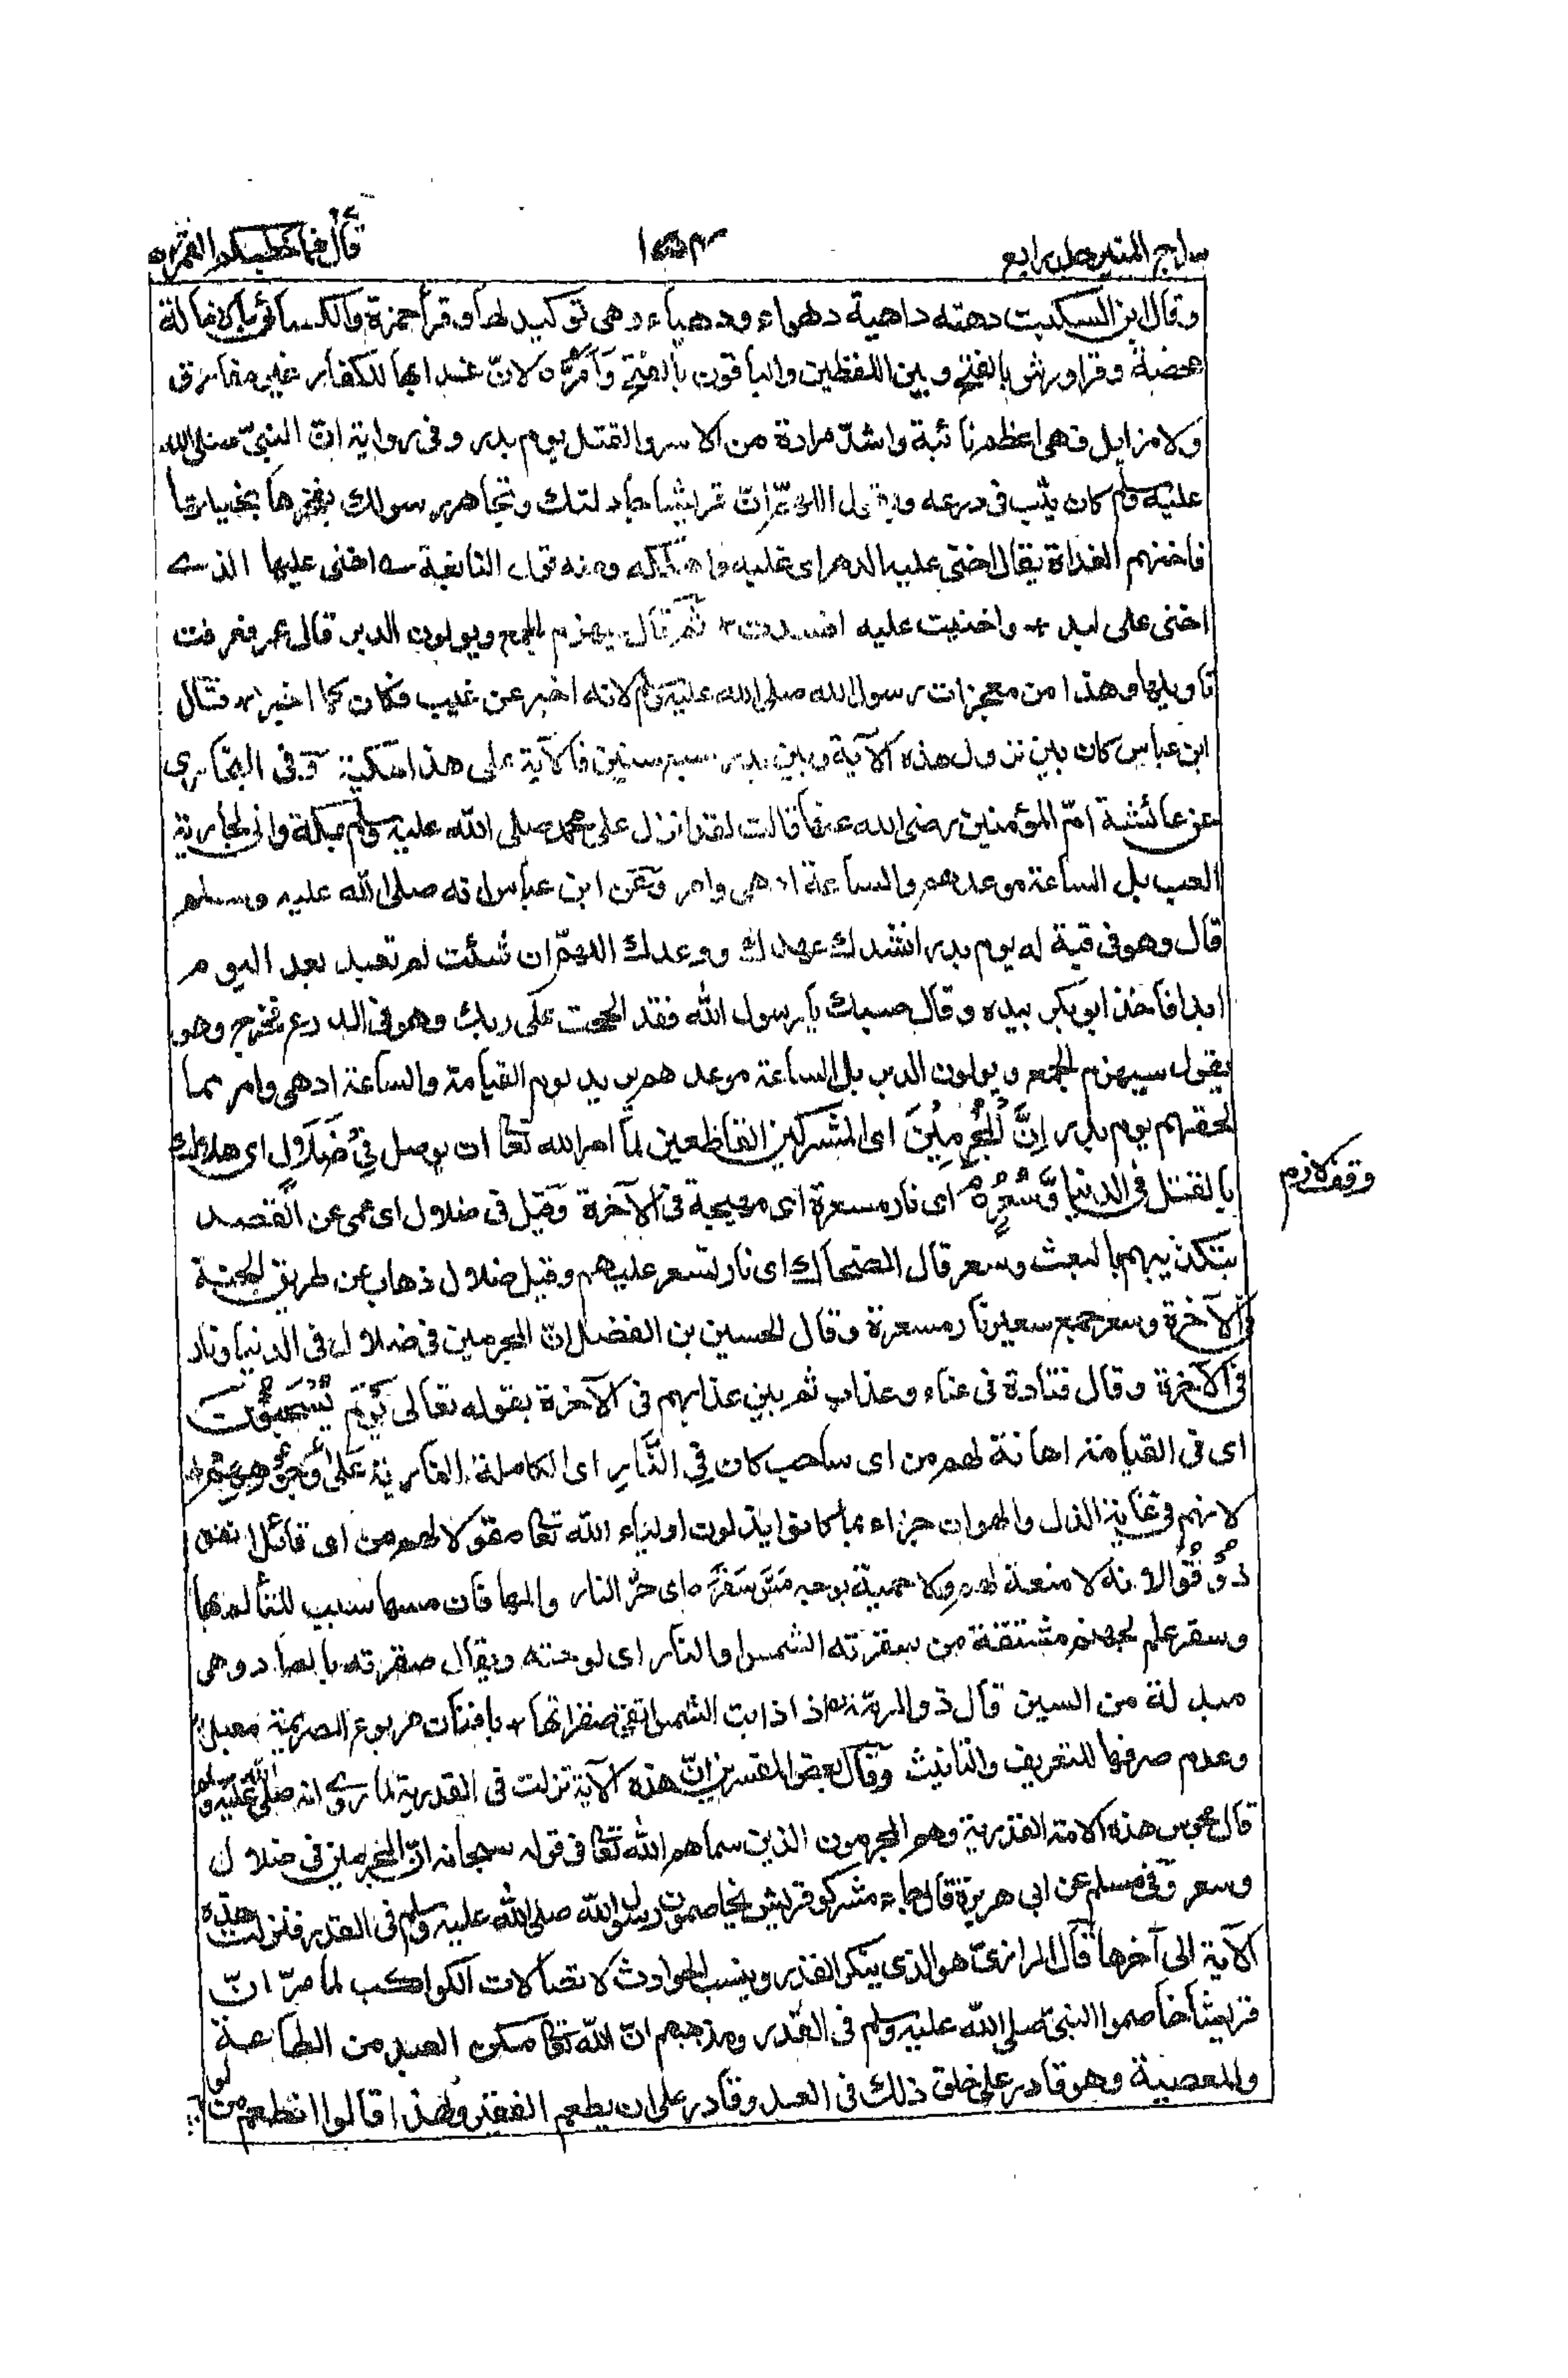 سراج المنير جلد رابع ١٥٣ قال فما خطبكم القمر
وقال ابن السكيت دهته داهية دهواء ودهياء وهى توكيد لها وقرأ حمزة والكسائى بالامالة
محضة وقرا ورش بالفتح وبين اللفظين والباقون بالفتح وَاَمَرُّ لانّ عذابها للكفار غير مفارق
ولا مزايل فهى اعظم نائبة واشدّ مرارة من الاسر والقتل يوم بدر وفى رواية انّ النبىّ صلى الله
عليه وسلم كان يثب فى درعه ويقول اللهمّ انّ قريشا جادلتك وتحاهر رسولك بفخرها بخيلائها
فاخنهم الغداة يقال اخنى عليه الدهر اى غلبه واهلكه ومنه قول النابغة ے اخنى عليها الذے
اخنى على لبد + واخنيت عليه افسدت + ثم قال سيهزم الجمع ويولون الدبر قال عمر فعرفت
تاويلها وهذا من معجزات رسول الله صلى الله عليه وسلم لانه اخبر عن غيب فكان كما اخبر + قال
ابن عباس كان بين نزول هذه الآية وبين بدر سبع سنين فالآية على هذا مكية وفى البخارى
عن عائشة امّ المؤمنين رضى الله عنها قالت لقد انزل على محمد صلى الله عليه وسلم بمكة وانى لجارية
العب بل الساعة موعدهم والساعة ادهى وامر وعن ابن عباس انه صلى الله عليه وسلم
قال وهو فى قبة له يوم بدر انشدك عهدك ووعدك اللهمّ ان شئت لم تعبد بعد اليوم
ابدا فاخذ ابو بكر بيده وقال حسبك يا رسول الله فقد الححت على ربك وهو فى الدرع فخرج وهو
يقول سيهزم الجمع ويولون الدبر بل الساعة موعدهم يريد يوم القيامة والساعة ادهى وامر مما
لحقهم يوم بدر اِنَّ الْمُجْرِمِيْنَ اى المشركين القاطعين لما امر الله تعا ان يوصل فِيْ ضَلَالٍ اى هلاك
وقف لازم
بالقتل فى الدنيا وَّسُعُرٍ اى نار مسعرة اى مهيجة فى الآخرة وقيل فى ضلال اى عمى عن القصد
بتكذيبهم بالبعث وسعر قال الضحاك اى نار تسعر عليهم وقيل ضلال ذهاب عن طريق الجنة
فى الآخرة وسعر جمع سعير نار مسعرة وقال الحسين بن الفضل انّ المجرمين فى ضلال فى الدنيا ونار
فى الآخرة وقال قتادة فى عناء وعذاب ثم بين عذابهم فى الآخرة بقوله تعالى يَوْمَ يُسْحَبُوْنَ
اى فى القيامة اهانة لهم من اى ساحب كان فِى النَّارِ اى الكاملة النارية عَلٰى وُجُوْهِهِمْ
لانهم فى غاية الذل والهوان جزاء بما كانوا يذلون اولياء الله تعا مقولا لهم من اى قائل اتفق
ذُوْقُوْا لانه لا منعة لهم ولا حمية بوجه مَسَّ سَقَرَ اى حرّ النار والمها فان مسها سبب للتألم بها
وسقر علم لجهنم مشتقة من سقرته الشمس والنار اى لوحته ويقال صقرته بالصاد وهى
مبدلة من السين قال ذو الرمّة اذا ذابت الشمس اتقى صقراتها + بافنان مربوع الصريمة معبل
وعدم صرفها للتعريف والتانيث وقال بعض المفسرين انّ هذه الآية نزلت فى القدرية لما روى انه صلى الله عليه وسلم
قال مجوس هذه الامة القدرية وهم المجرمون الذين سماهم الله تعا فى قوله سبحانه انّ المجرمين فى ضلال
وسعر وفى مسلم عن ابى هريرة قال جاء مشركو قريش يخاصمون رسول الله صلى الله عليه وسلم فى القدر فنزلت هذه
الآية الى آخرها قال الرازىّ هو الذى ينكر القدر وينسب الحوادث لاتصالات الكواكب لما مرّ انّ
قريشا خاصموا النبىّ صلى الله عليه وسلم فى القدر ومذهبهم انّ الله تعا مكن العبد من الطاعة
والمعصية وهو قادر على خلق ذلك فى العبد وقادر على ان يطعم الفقير ولهذا قالوا انطعم من لو